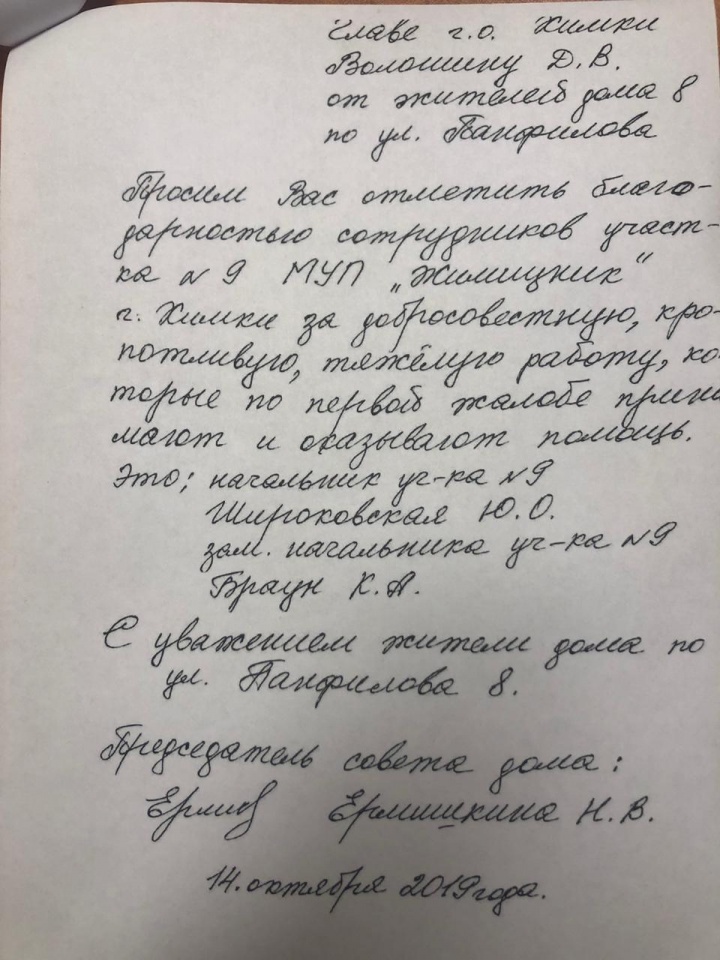 Главе г.о. Химки
Волошину Д.В.
от жителей дома 8
по ул. Панфилова
Просим Вас отметить благо-
дарностью сотрудников участ-
ка №9 МУП „Жилищник“
г. Химки за добросовестную, кро-
потливую, тяжёлую работу, ко-
торые по первой жалобе прини
мают и оказывают помощь.
Это; начальник уч-ка №9
Широковская Ю.О.
зам. начальника уч-ка №9
Браун К.А.
С уважением жители дома по
ул. Панфилова 8.
Председатель совета дома:
Ермишкина Н.В.
14. октября 2019 года.